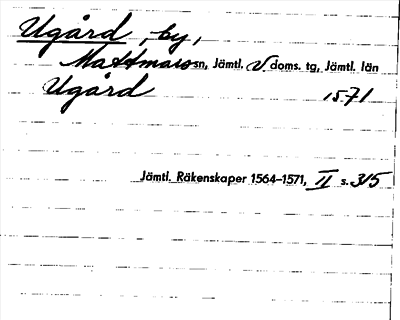 Ugård, by,
Mattmars sn, Jämtl. V. doms. tg, Jämtl. län
Ugård 1571
Jämtl. Räkenskaper 1564–1571, II s. 315